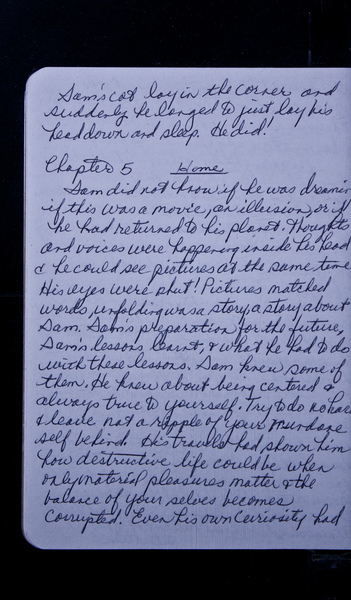 Sam's cot lay in the corner and
suddenly he longed to just lay his
head down and sleep. He did!
Chapter 5 Home
Sam did not know if he was dreamin
if this was a movie, an illusion, or if
he had returned to his planet. Thoughts
and voices were happening inside his head
& he could see pictures at the same time
His eyes were shut! Pictures matched
words, unfolding was a story, a story about
Sam. Sam's preparation for the future,
Sam's lessons learnt, & what he had to do
with these lessons. Sam knew some of
them. He knew about being centered &
always true to yourself. Try to do no harm
& leave not a ripple of your mundane
self behind. His travels had shown him
how destructive life could be when
only material pleasures matter & the
balance of your selves becomes
corrupted. Even his own curiosity had